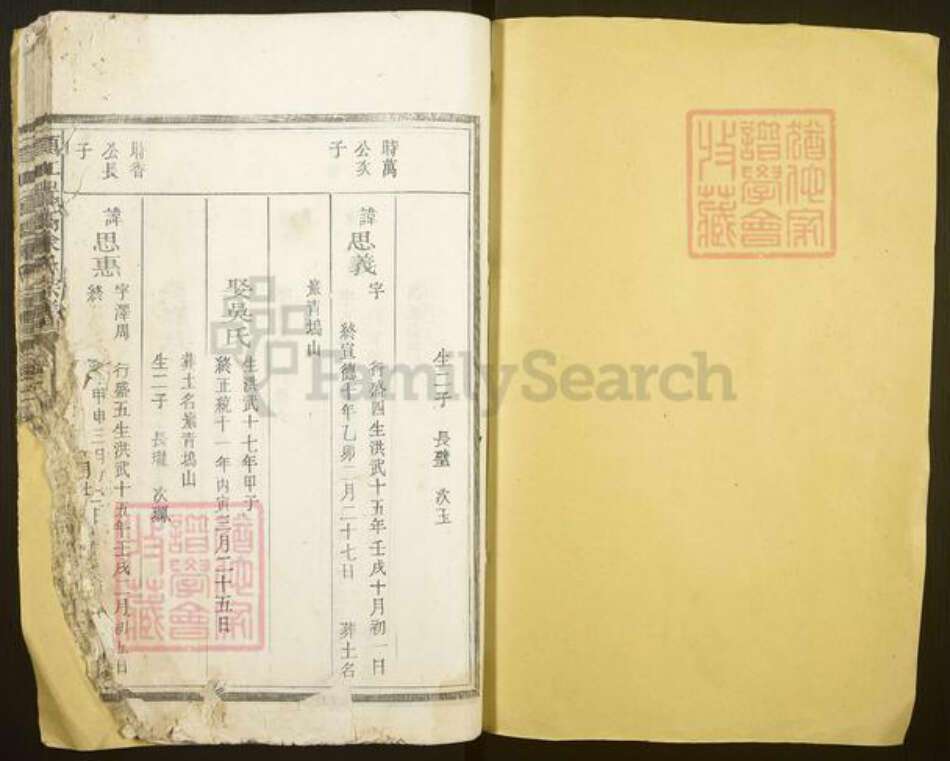 生二子 長璧 次玉
時萬
公次
子
諱思義 字
行盛四生洪武十五年壬戌十月初一日
終宣德十年乙卯二月二十七日 葬土名
紫青塢山
娶吳氏
生洪武十七年甲子
終正統十一年丙寅三月二十五日
葬土名紫青塢山
生二子 長瓏 次
公長
子
諱思惠
字澤周 行盛五生洪武十五年壬戌二月初五日
終 甲申三
收藏
譜學會
FamilySearch